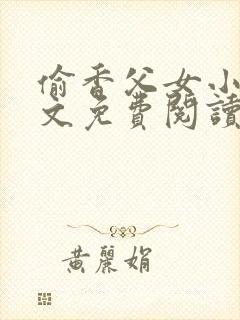 偷香父女小
文免費閱讀
黃麗娟